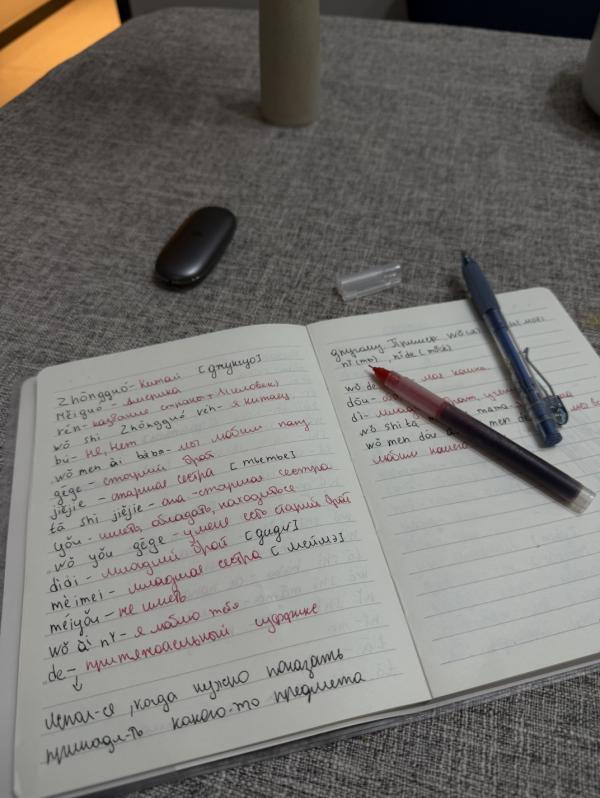 Zhōngguó - Китай [джунгуо]
Měiguó - Америка
rén - название страны + (человек)
wǒ shì Zhōngguó rén - я китаец
bù - Не, Нет
wǒ men ài bàba - мы любим папу
gēge - старший брат
jiějie - старшая сестра [тьетье]
tā shì jiějie - она - старшая сестра
yǒu - иметь, обладать, находиться
wǒ yǒu gēge - у меня есть старший брат
dìdi - младший брат [диди]
mèimei - младшая сестра [меймэ]
méiyǒu - не иметь
wǒ ài nǐ - я люблю тебя
de - притяжательный суффикс
↓
Испол-ся, когда нужно показать
принадл-ть какого-то предмета
другому. Пришись wǒ
nǐ (ты), nǐ de (твой)
wǒ de моя
dōu -
dì - младший брат,
wǒ shì tā мама
wǒ men dōu ài men de
любим нашего